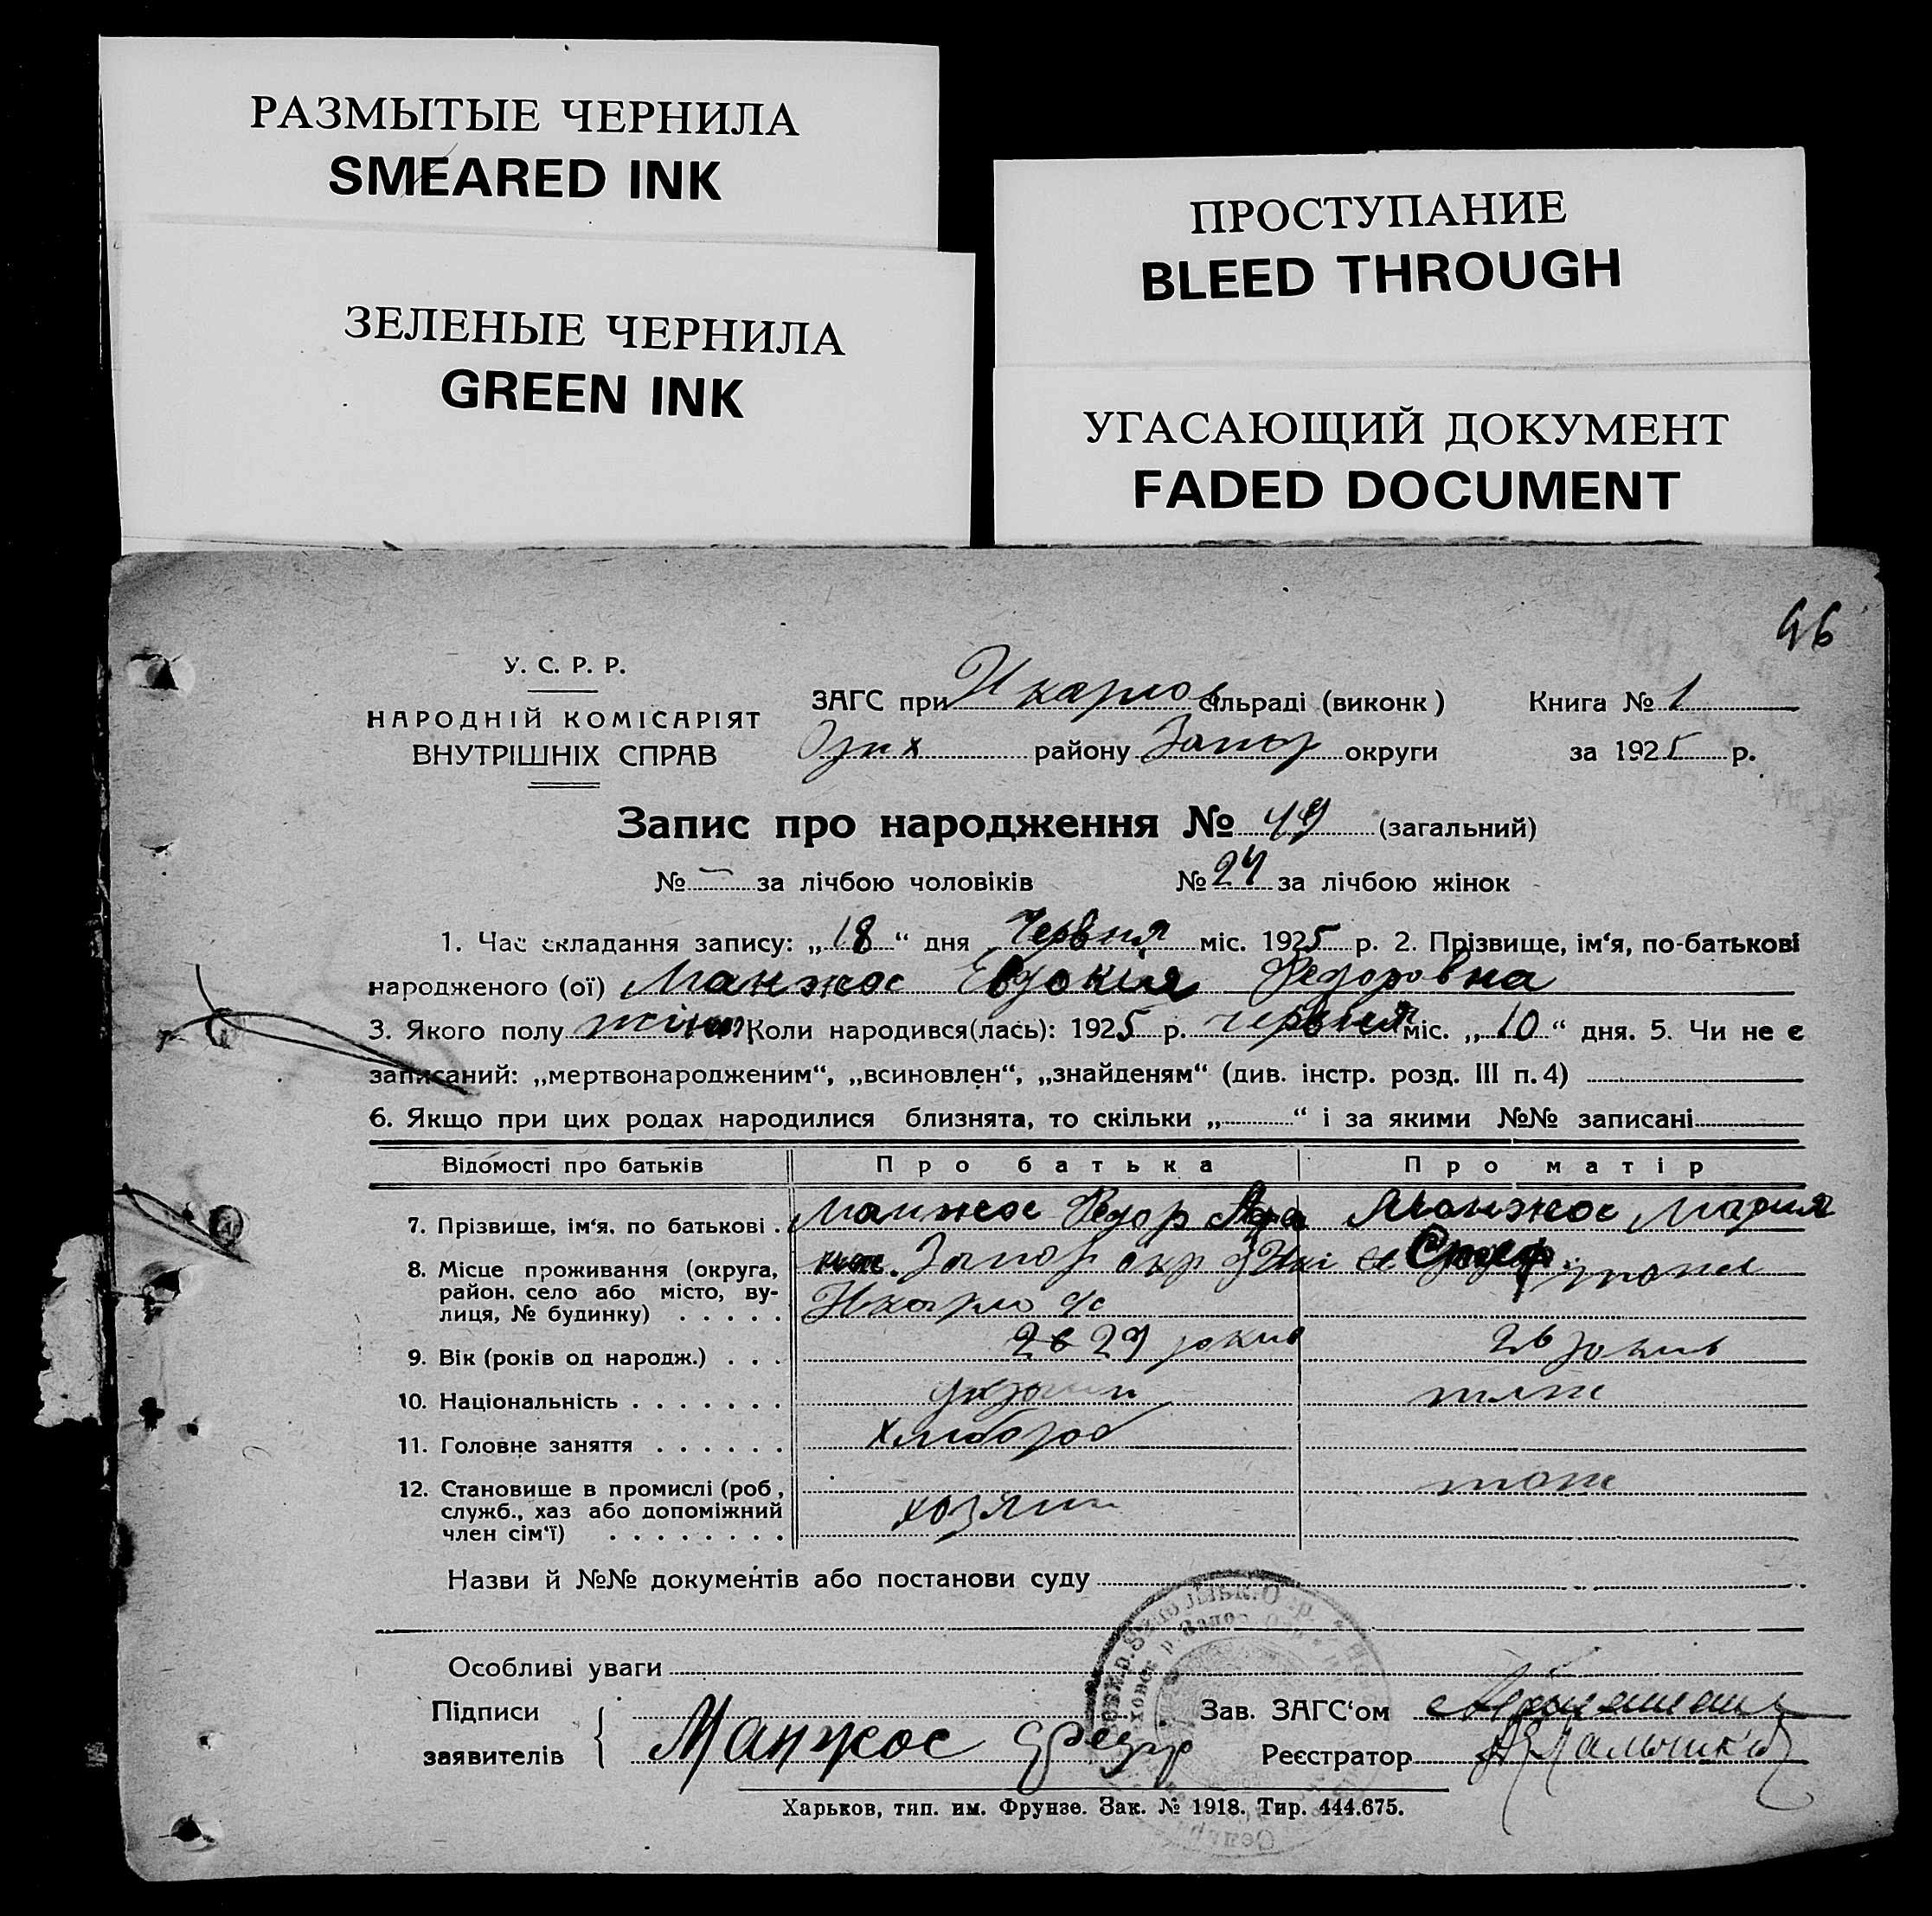 РАЗМЫТЫЕ ЧЕРНИЛА
SMEARED INK
ЗЕЛЕНЫЕ ЧЕРНИЛА
GREEN INK
ПРОСТУПАНИЕ
BLEED THROUGH
УГАСАЮЩИЙ ДОКУМЕНТ
FADED DOCUMENT
46
У. С. Р. Р.
НАРОДНІЙ КОМІСАРІЯТ
ВНУТРІШНІХ СПРАВ
ЗАГС при сільраді (виконк) Книга № 1
Оріх району Запор округи за 1925 р.
Запис про народження № 49 (загальний)
№ — за лічбою чоловіків № 24 за лічбою жінок
1. Час складання запису: „18“ дня Червня міс. 1925 р. 2. Прізвище, ім‘я, по-батькові
народженого (ої) Манжос Евдокія Федоровна
3. Якого полу жіноч Коли народився(лась): 1925 р. червня міс. „10“ дня. 5. Чи не є
записаний: „мертвонародженим“, „всиновлен“, „знайденям“ (див. інстр. розд. III п. 4)
6. Якщо при цих родах народилися близнята, то скільки „ “ і за якими №№ записані
Відомості про батьків Про батька Про матір
7. Прізвище, ім‘я, по батькові . Манжос Федор Манжос Мария
8. Місце проживання (округа, район, село або місто, ву-
лиця, № будинку) . . . . .
Запор окр
9. Вік (років од народж.) . . . 26 29 років 26 років
10. Національність . . . . . . . україн тож
11. Головне заняття . . . . . . хлибороб
12. Становище в промислі (роб., служб., хаз або допоміжний
член сім‘ї) . . . . . . . .
хозяин тож
Назви й №№ документів або постанови суду
Особливі уваги
Підписи
заявителів Манжос Федір
Зав. ЗАГС‘ом
Реєстратор
Харьков, тип. им. Фрунзе. Зак. № 1918. Тир. 444.675.